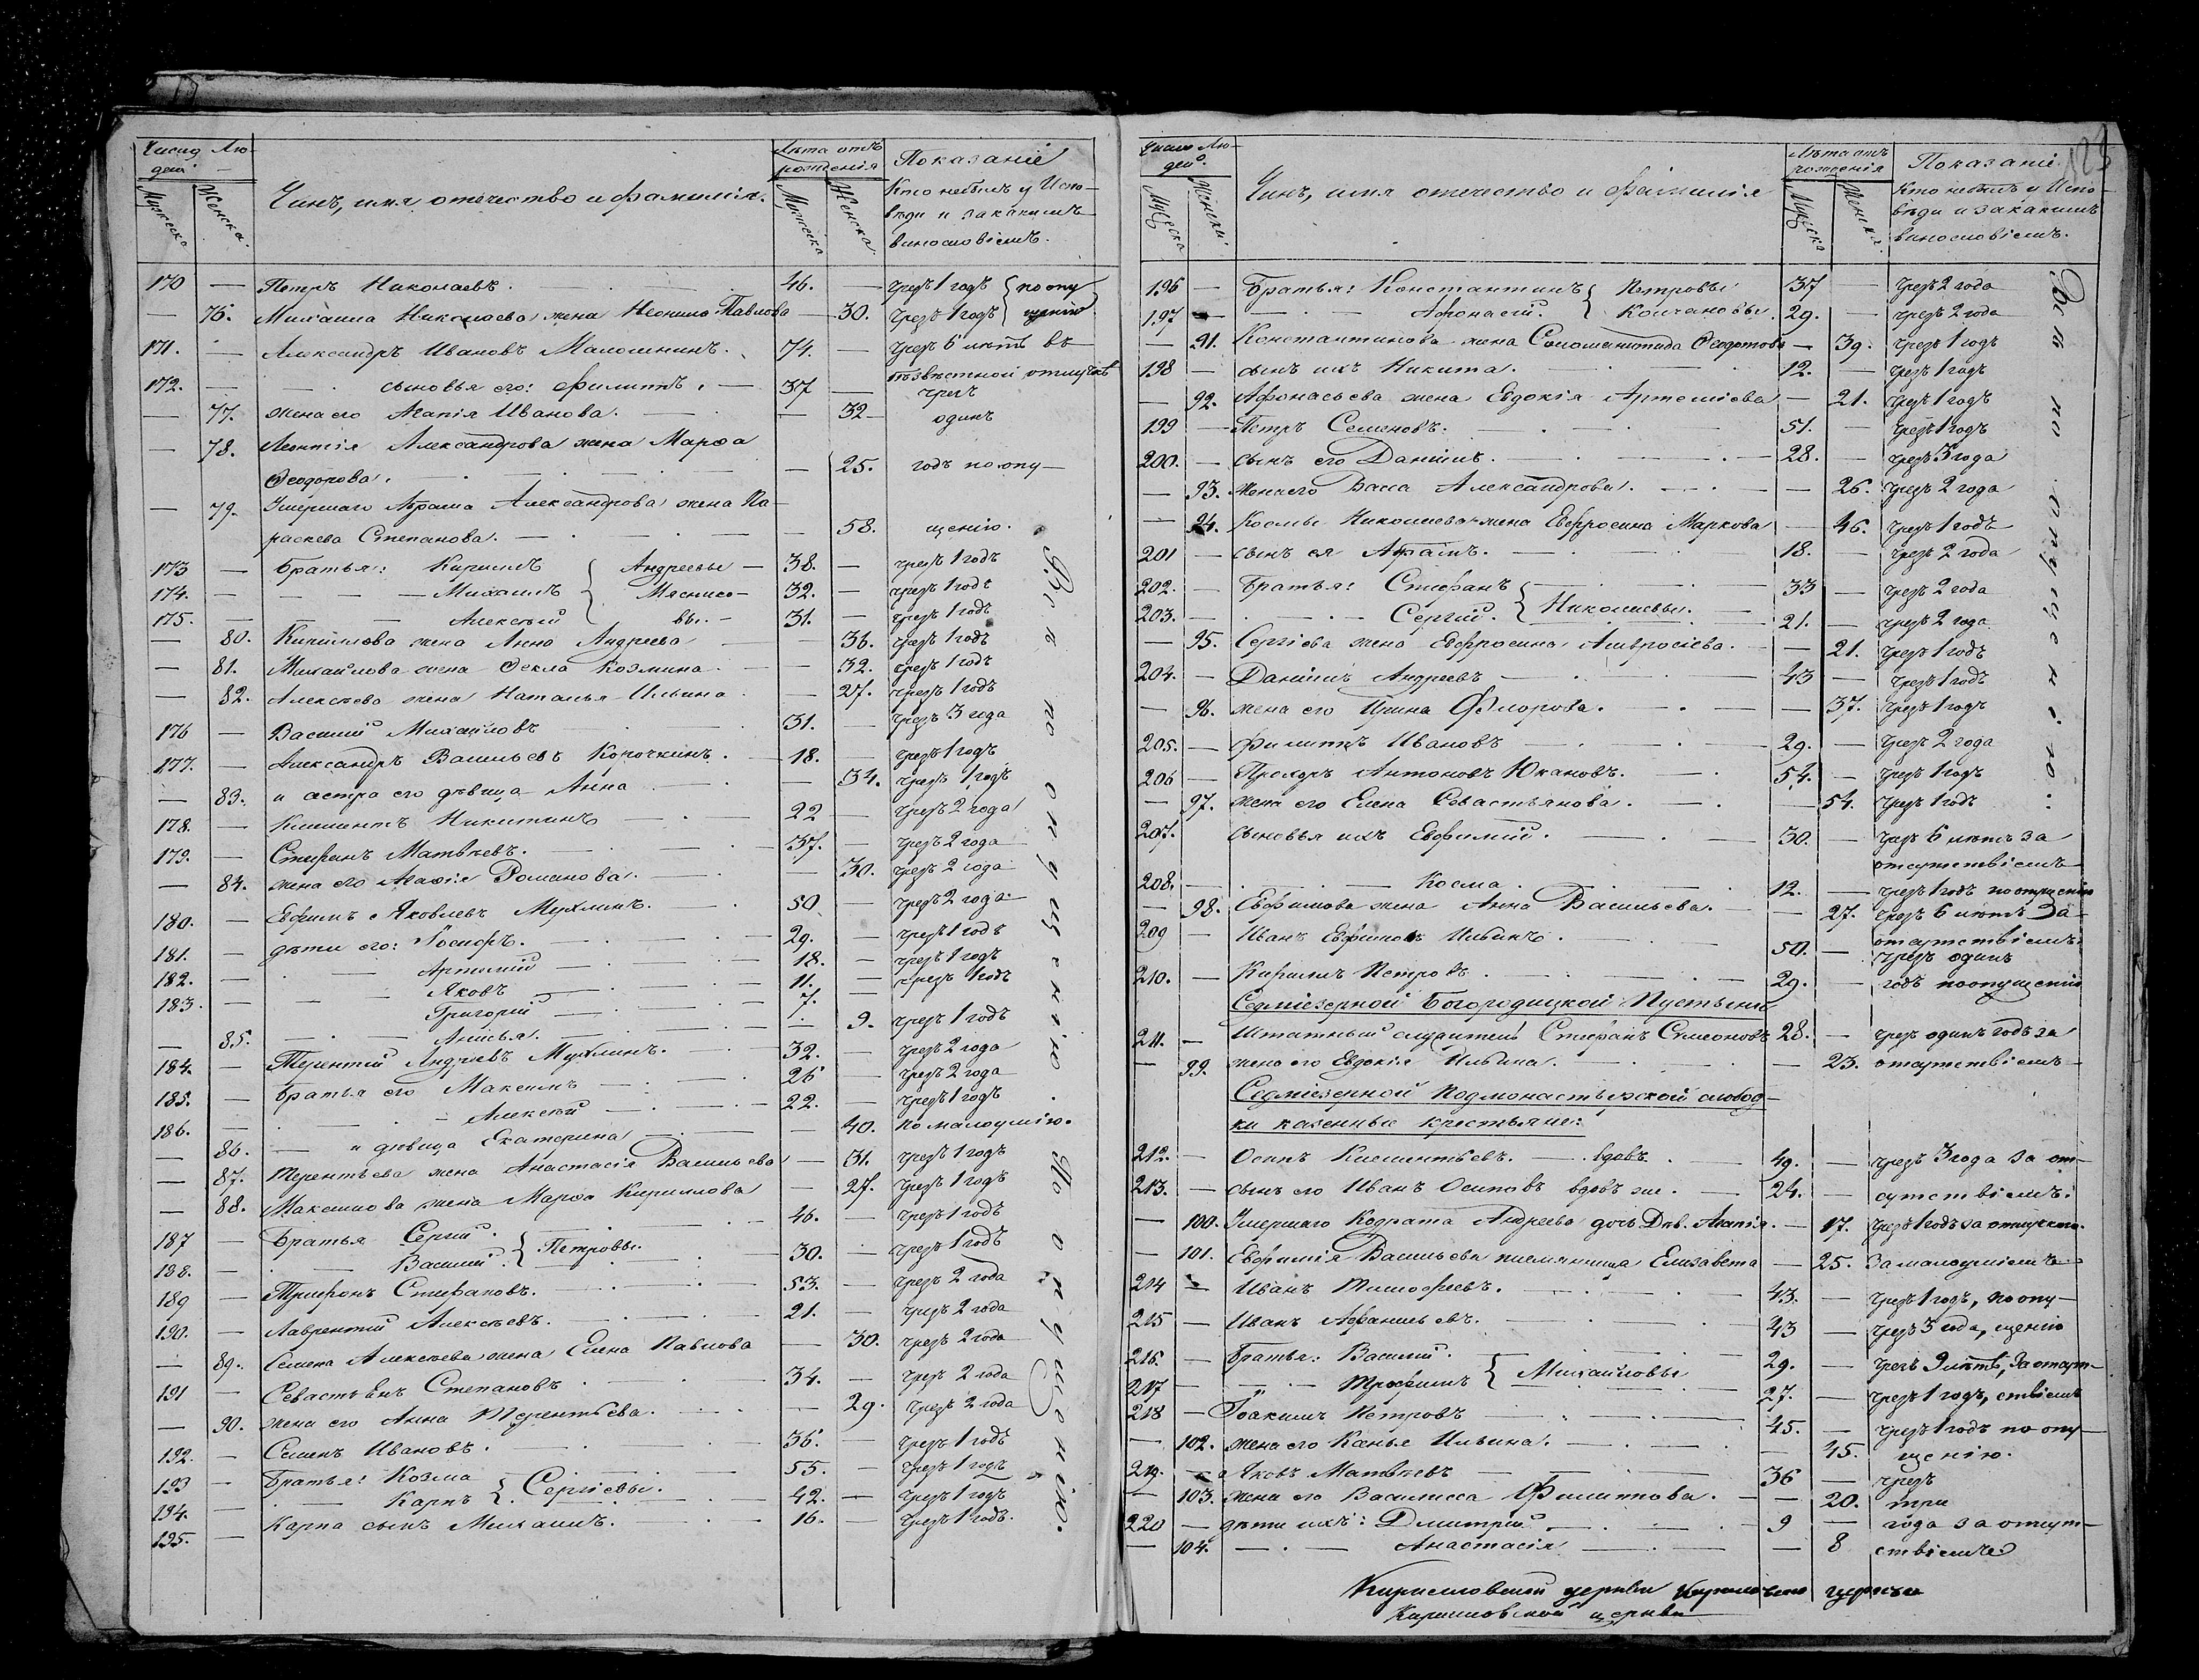 Число Лю-
дей
Мужеска
Женска.
Чинъ, имя отечество и фамилія.
Лѣта отъ
рожденія
Мужеска
Женска.
Показаніе
Кто небылъ у Испо-
вѣди и закакимъ
винословіемъ.
170 — Петръ Николаевъ. 46. — чрезъ 1 годъ { по опу
— 76. Михаила Николаева жена Неонила Павлова — 30. чрезъ 1 годъ { щенію
171. — Александръ Ивановъ Малошнинъ. 74. — чрезъ 6 лѣтъ въ
безвѣстной отлучкѣ
172. — сыновья его: Филиппъ. — 37 — чрезъ
— 77. жена его Агапія Иванова. — 32 — одинъ
— 78. Леонтія Александрова жена Марѳа
Ѳеодорова. — 25. годъ по опу—
— 79. Умершаго Абрама Александрова жена Па-
раскева Степанова. — 58. щенію.
173 — Братья: Кириллъ { Андреевы — 38. — чрезъ 1 годъ
174. — Михаилъ { Мяснико- 32. — чрезъ 1 годъ
175. — Алексѣй { вы. — 31. — чрезъ 1 годъ
— 80. Кирилова жена Анна Андреева — 36. чрезъ 1 годъ
— 81. Михайлова жена Ѳекла Козмина — 32. чрезъ 1 годъ
— 82. Алексѣева жена Наталья Ильина — 27. чрезъ 1 годъ
176 — Василій Михайловъ 31. — чрезъ 3 года
177. — Александръ Васильевъ Корочкинъ. — 18. чрезъ 1 годъ
— 83. и сестра его дѣвица Анна — 34. чрезъ 1 годъ
178. — Климентъ Никитинъ 22 — чрезъ 2 года
179. — Стефанъ Матвѣевъ. 37. — чрезъ 2 года
— 84. жена его Агафія Романова. — 30. чрезъ 2 года
180. — Евфимъ Яковлевъ Мухлинъ. 50 — чрезъ 2 года
181. — дѣти его: Іосифъ. 29. — чрезъ 1 годъ
182. — Артемій 18. — чрезъ 1 годъ
183. — Яковъ 11. — чрезъ 1 годъ
— Григорій 7.
— 85. Анисья. — 9. чрезъ 1 годъ
184. — Терентій Андреевъ Мухлинъ. 32. — чрезъ 2 года
185. — братья его Максимъ 26 — чрезъ 2 года
186. — Алексѣй 22. — чрезъ 1 годъ
— 86. — и дѣвица Екатерина — 40. по малоумію.
— 87. Терентьева жена Анастасія Васильева — 31. чрезъ 1 годъ
— 88. Максимова жена Марѳа Кириллова — 27. чрезъ 1 годъ
187 — Братья Сергій. } Петровы. 46. — чрезъ 1 годъ
188. — Василій. } 30. — чрезъ 1 годъ
189 — Трифонъ Стефановъ. 53. — чрезъ 2 года
190. — Лаврентій Алексѣевъ. 21. — чрезъ 2 года
— 89. Семена Алексѣева жена Елена Павлова — 30. чрезъ 2 года
191 — Севастьянъ Степановъ 34. — чрезъ 2 года
— 90. жена его Анна Терентьева. — 29. чрезъ 2 года
192. — Семенъ Ивановъ. 36. — чрезъ 1 годъ
193 — Братья: Козма { Сергіевы. 55. — чрезъ 1 годъ
194. — Карпъ { 42. — чрезъ 1 годъ
195. — Карпа сынъ Михаилъ. 16. — чрезъ 1 годъ.
Всѣ по опущенію.
По опущенію.
Число Лю-
дей.
Мужеска
Женска.
Чинъ, имя отечество и фамилія
Лѣта отъ
рожденія
Мужеска
Женска.
Показаніе
Кто небылъ у Испо-
вѣди и закакимъ
винословіемъ.
196 — Братья: Константинъ { Петровы 37 — чрезъ 2 года
197 — Афонасій. { Колчановы. 29. — чрезъ 2 года
— 91. Константинова жена Соломонитида Ѳедотова — 39. чрезъ 1 годъ
198 — сынъ ихъ Никита. 12. — чрезъ 1 годъ
— 92. Афонасьева жена Евдокія Артеміева — 21. чрезъ 1 годъ
199 — Петръ Семеновъ. 51. — чрезъ 1 годъ
200. — сынъ его Даніилъ. 28. — чрезъ 3 года
— 93. Жена его Васса Александрова. — 26. чрезъ 2 года
— 94. Космы Николаева жена Евфросина Маркова — 46. чрезъ 1 годъ
201 — сынъ ея Абрамъ. 18. — чрезъ 2 года
202. — Братья: Стефанъ { Николаевы. 33 — чрезъ 2 года
203. — Сергій. { 21. — чрезъ 2 года
— 95. Сергіева жена Евфросина Амвросіева. — 21. чрезъ 1 годъ
204. — Даніилъ Андреевъ 43 — чрезъ 1 годъ
— 96. жена его Ирина Флорова. — 37. чрезъ 1 годъ
205. — Филиппъ Ивановъ 29. — чрезъ 2 года
206 — Прохоръ Антоновъ Юкановъ. 54. — чрезъ 1 годъ
— 97. жена его Елена Севастьянова. — 54. чрезъ 1 годъ
207. сыновья ихъ Евфимій. 30. — чрезъ 6 лѣтъ за
отсутствіемъ
208. — Косма. 12. — чрезъ 1 годъ по опущенію
— 98. Евфимова жена Анна Васильева. — 27. чрезъ 6 лѣтъ За-
отсутствіемъ.
209 — Иванъ Евфимовъ Ильинъ. 50. — чрезъ одинъ
210. — Кирилъ Петровъ. 29. — годъ по опущенію
Седміезерной Богородицкой Пустыни
211. — Штатный служитель Стефанъ Симеоновъ 28. — чрезъ одинъ годъ за
— 99. жена его Евдокія Ильина. — 23. отсутствіемъ
Седміезерной Подмонастырской слобод-
ки казенные крестьяне:
212. — Осипъ Климентьевъ. — вдовъ. 49. — чрезъ 3 года за от-
213. — сынъ его Иванъ Осиповъ вдовъ же. 24. — сутствіемъ.
— 100. Умершаго Кодрата Андреева дочь Дѣв. Агапія. — 17. чрезъ 1 годъ за отлучкою.
— 101. Евфимія Васильева племянница Елизавета — 25. За малоуміемъ
214 — Иванъ Тимофеевъ. 43. — чрезъ 1 годъ, по опу—
215 — Иванъ Афанасьевъ. 43 — чрезъ 3 года, щенію
216. — Братья: Василій. { Михайловы 29. — чрезъ 9 лѣтъ, За отсут—
217 — Трофимъ { 27. — чрезъ 1 годъ, ствіемъ
218 — Іоакимъ Петровъ 45. — чрезъ 1 годъ по опу—
— 102. жена его Ксенья Ильина. — 45. щенію.
219. — Яковъ Матвѣевъ 36 — чрезъ
— 103. жена его Василисса Филиппова. — 20. три
220 — дѣти ихъ: Дмитрій. 9 — года за отсут—
— 104. Анастасія — 8 ствіемъ
Всѣ по опущенію:
Кирилловской церкви
Кирилловской церкви